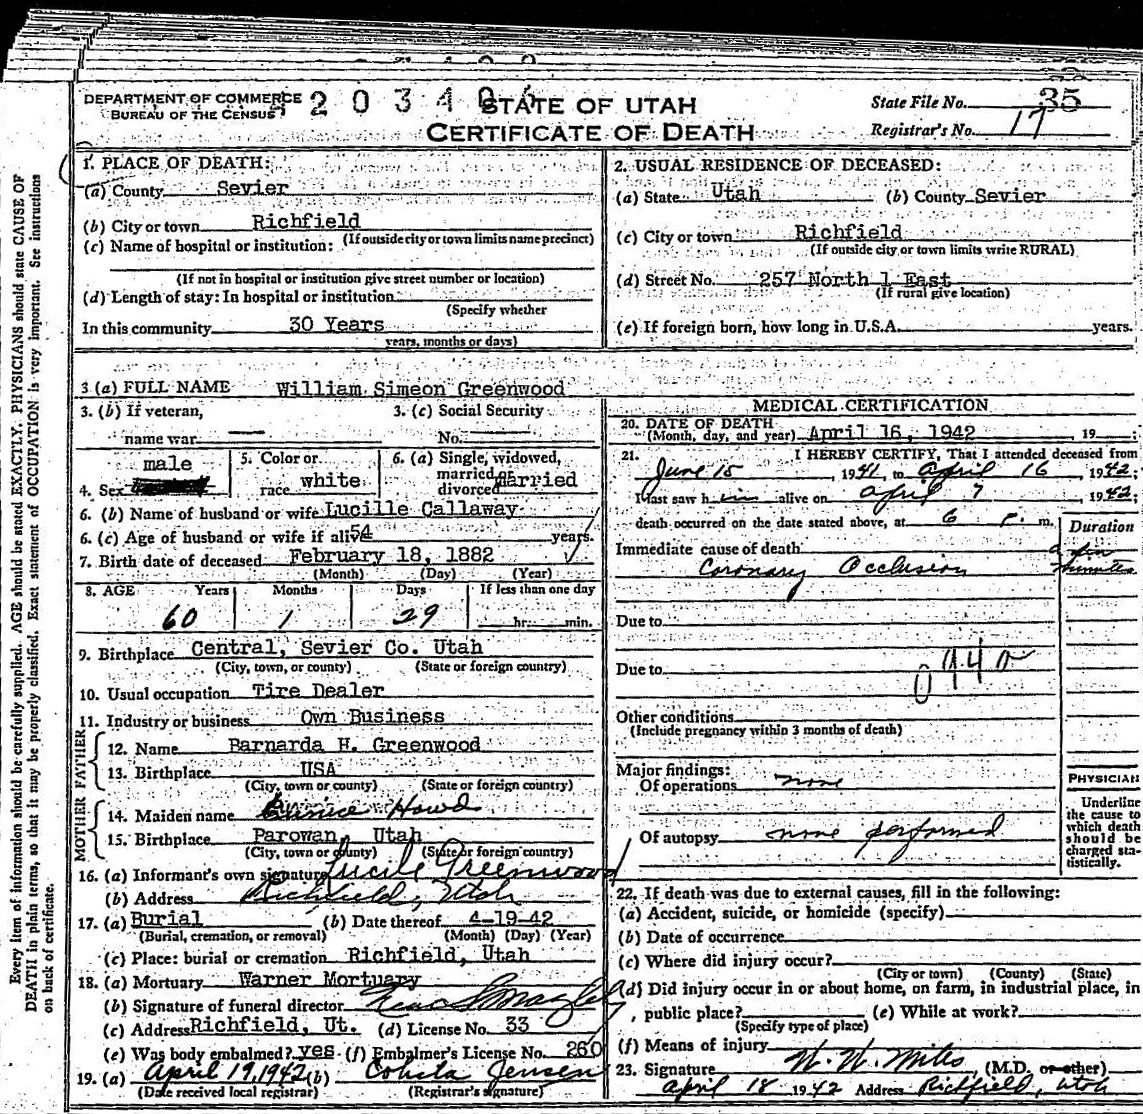 DEPARTMENT OF COMMERCE
BUREAU OF THE CENSUS
STATE OF UTAH
CERTIFICATE OF DEATH
State File No. 35
Registrar's No. 17
1. PLACE OF DEATH:
(a) County Sevier
(b) City or town Richfield
(If outside city or town limits name precinct)
(c) Name of hospital or institution:
(If not in hospital or institution give street number or location)
(d) Length of stay: In hospital or institution
(Specify whether
In this community 30 Years
years, months or days)
2. USUAL RESIDENCE OF DECEASED:
(a) State Utah (b) County Sevier
(c) City or town Richfield
(If outside city or town limits write RURAL)
(d) Street No. 257 North 1 East
(If rural give location)
(e) If foreign born, how long in U.S.A. years.
3 (a) FULL NAME William Simeon Greenwood
3. (b) If veteran,
name war
3. (c) Social Security
No.
4. Sex male
5. Color or
race white
6. (a) Single, widowed,
married or
divorced Married
6. (b) Name of husband or wife Lucille Callaway
6. (c) Age of husband or wife if alive 54 years.
7. Birth date of deceased February 18, 1882
(Month) (Day) (Year)
8. AGE Years Months Days If less than one day
60 1 29 hr. min.
9. Birthplace Central, Sevier Co. Utah
(City, town, or county) (State or foreign country)
10. Usual occupation Tire Dealer
11. Industry or business Own Business
FATHER
12. Name Barnarda H. Greenwood
13. Birthplace USA
(City, town or county) (State or foreign country)
MOTHER
14. Maiden name Eunice Howd
15. Birthplace Parowan, Utah
(City, town or county) (State or foreign country)
16. (a) Informant's own signature Lucile Greenwood
(b) Address Richfield, Utah
17. (a) Burial (b) Date thereof 4-19-42
(Burial, cremation, or removal) (Month) (Day) (Year)
(c) Place: burial or cremation Richfield, Utah
18. (a) Mortuary Warner Mortuary
(b) Signature of funeral director
(c) Address Richfield, Ut. (d) License No. 33
(e) Was body embalmed? yes (f) Embalmer's License No. 260
19. (a) April 19, 1942 (b) Jensen
(Date received local registrar) (Registrar's signature)
MEDICAL CERTIFICATION
20. DATE OF DEATH
(Month, day, and year) April 16, 1942, 19
21. I HEREBY CERTIFY, That I attended deceased from
June 15 1941, to April 16, 1942;
I last saw him alive on April 7, 1942;
death occurred on the date stated above, at 6 P. m.
Duration
Immediate cause of death
Coronary Occlusion a few minutes
Due to
Due to
094a
Other conditions
(Include pregnancy within 3 months of death)
Major findings:
Of operations none
Of autopsy none performed
PHYSICIAN
Underline
the cause to
which death
should be
charged sta-
tistically.
22. If death was due to external causes, fill in the following:
(a) Accident, suicide, or homicide (specify)
(b) Date of occurrence
(c) Where did injury occur?
(City or town) (County) (State)
(d) Did injury occur in or about home, on farm, in industrial place, in
public place? (e) While at work?
(Specify type of place)
(f) Means of injury
23. Signature N. N. Miles (M.D. or other)
April 18 1942 Address Richfield, Utah
Every item of information should be carefully supplied. AGE should be stated EXACTLY. PHYSICIANS should state CAUSE OF
DEATH in plain terms, so that it may be properly classified. Exact statement of OCCUPATION is very important. See instructions
on back of certificate.